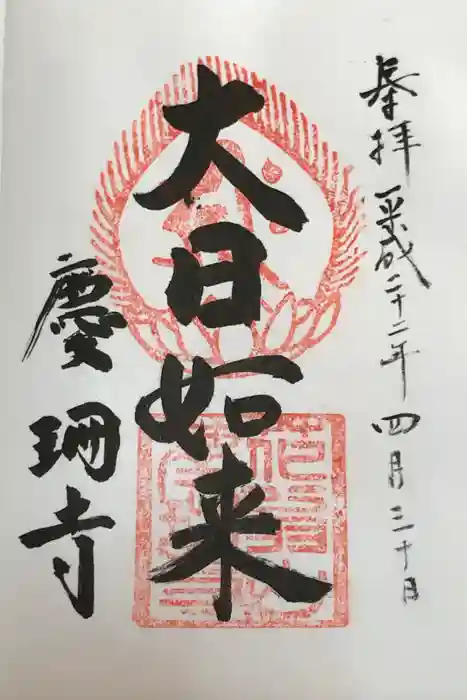 奉拝 平成二十二年四月三十日
大日如来
慶珊寺